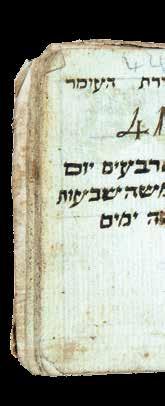 ירת העומר
41
ארבעים יום
משה שבעות
ה ימים